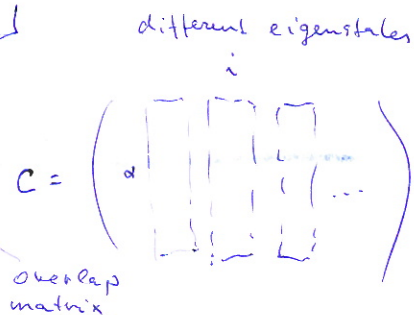 different eigenstates
i
C = ( α ... )
overlap
matrix